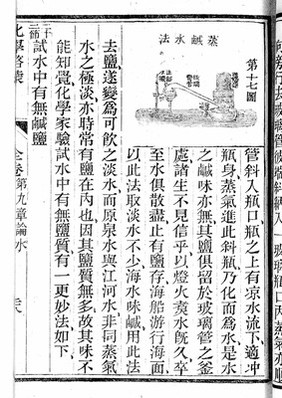 口內蒸氣亦順
第十七圖
蒸鹹水法
管斜入瓶口瓶之上有凉水流下適冲
瓶身蒸氣進此斜瓶乃化而為水是水
之鹹味亦無其鹽俱留於玻璃管之釜
處諸生不見信乎以燈火煑水旣久卒
至水俱散盡止有鹽存海船游行海面
以此法取淡水不少海水味鹹用此法
去鹽遂變為可飲之淡水而原泉水與江河水非同蒸氣
水之極淡亦時常有鹽質在內也因其鹽質無多故其味不
能知覺化學家驗試水中有無鹽質有一更妙法如下、
試水中有無鹹鹽
化學啓蒙 全卷第九章論水